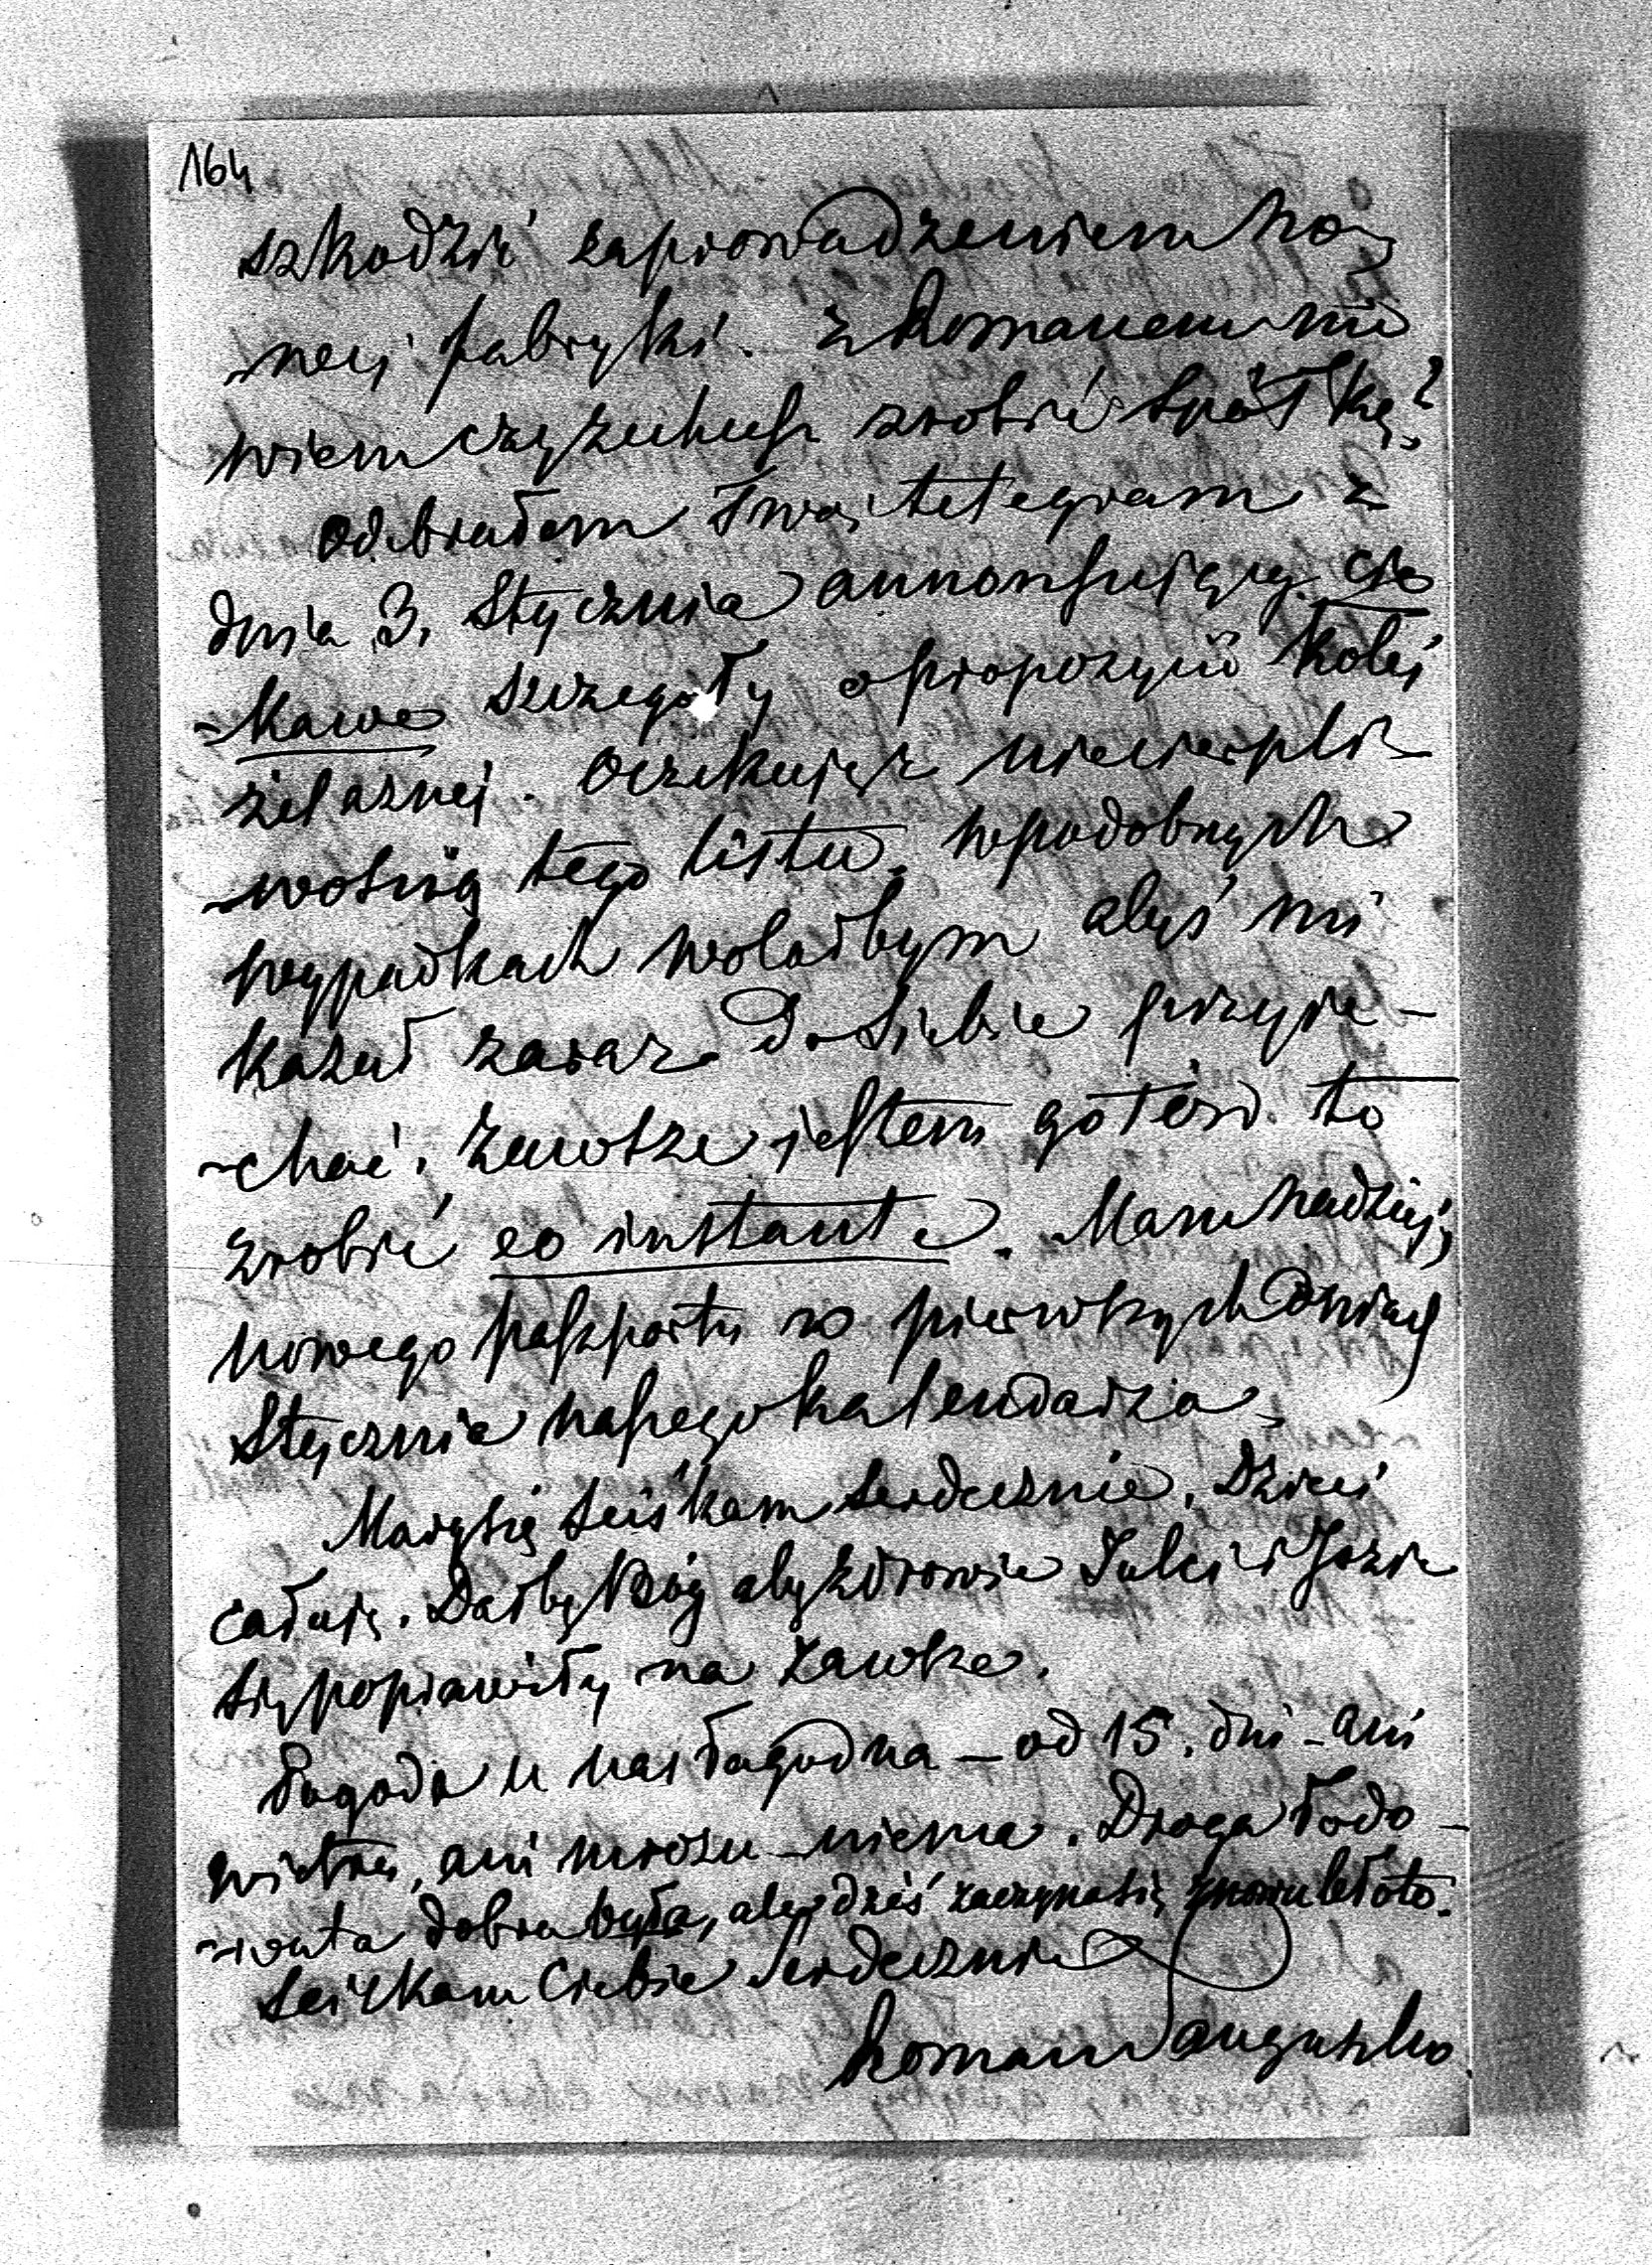 164
szkodzić zaprowadzeniem no-
nej fabryki. z Romanem nie
wiem czy zechcesz zrobić spółkę?
Odebrałem Twój telegram z
dnia 3. Stycznia annonsujący cie
-kawe szczegóły o propozycii kolei
żelaznej. Oczekuję z niecierpli-
-wością tego listu. w podobnych
wypadkach wolałbym abyś mi
kazał zaraz do siebie przyje-
-chać. Zawsze jestem gotów to
zrobić eo instante. Mam nadzieję
nowego paszportu w pierwszych dniach
Stycznia naszego kalendarza.
Marysię ściskam serdecznie. Dzieci
całuję. Dałby Bóg aby zdrowie Julci i Józia
się poprawiły na zawsze.
Pogoda u nas łagodna – od 15. dni – ani
wiatru, ani mrozu – niema. Droga lodo-
-wata dobra była, ale dziś zaczyna się znowu błoto.
Ściskam Ciebie Serdecznie
Roman Sanguszko